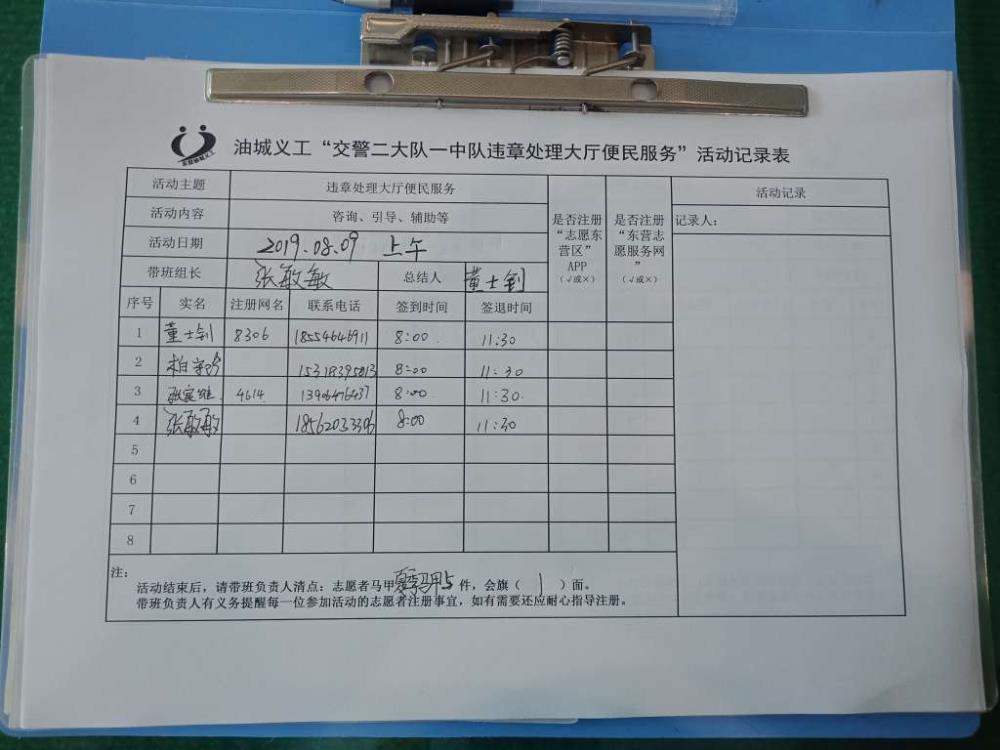 油城义工“交警二大队一中队违章处理大厅便民服务”活动记录表
活动主题 违章处理大厅便民服务
活动内容 咨询、引导、辅助等
活动日期 2019.08.09 上午
带班组长 张敏敏 总结人 董士钊
是否注册“志愿东营区”APP（√或×）
是否注册“东营志愿服务网”（√或×）
活动记录
记录人：
序号 实名 注册网名 联系电话 签到时间 签退时间
1 董士钊 8306 18554646911 8:00 11:30
2 15318395013 8:00 11:30
3 4614 13906476437 8:00 11:30
4 张敏敏 18562033306 8:00 11:30
5
6
7
8
注：
活动结束后，请带班负责人清点：志愿者马甲 5 件，会旗（ 1 ）面。
带班负责人有义务提醒每一位参加活动的志愿者注册事宜，如有需要还应耐心指导注册。